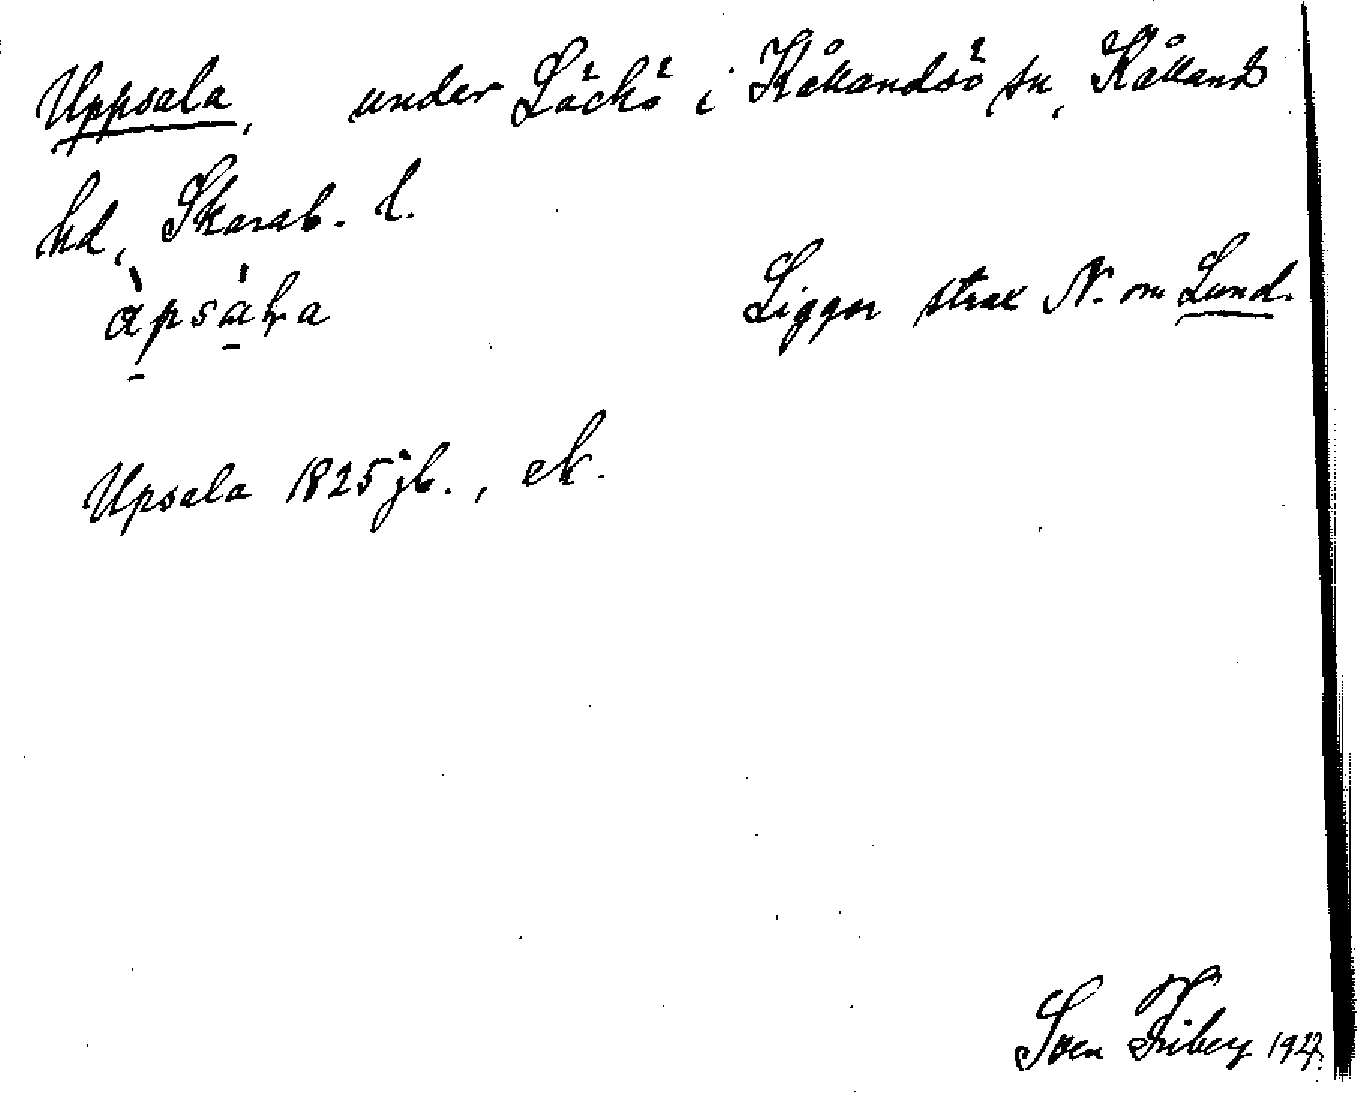 Uppsala, under Läckö i Kållandsö sn, Kållands
hd, Skarab. l.
àpsála
Ligger strax N. om Lund.
Upsala 1825 jb., ek.
Sven Friberg